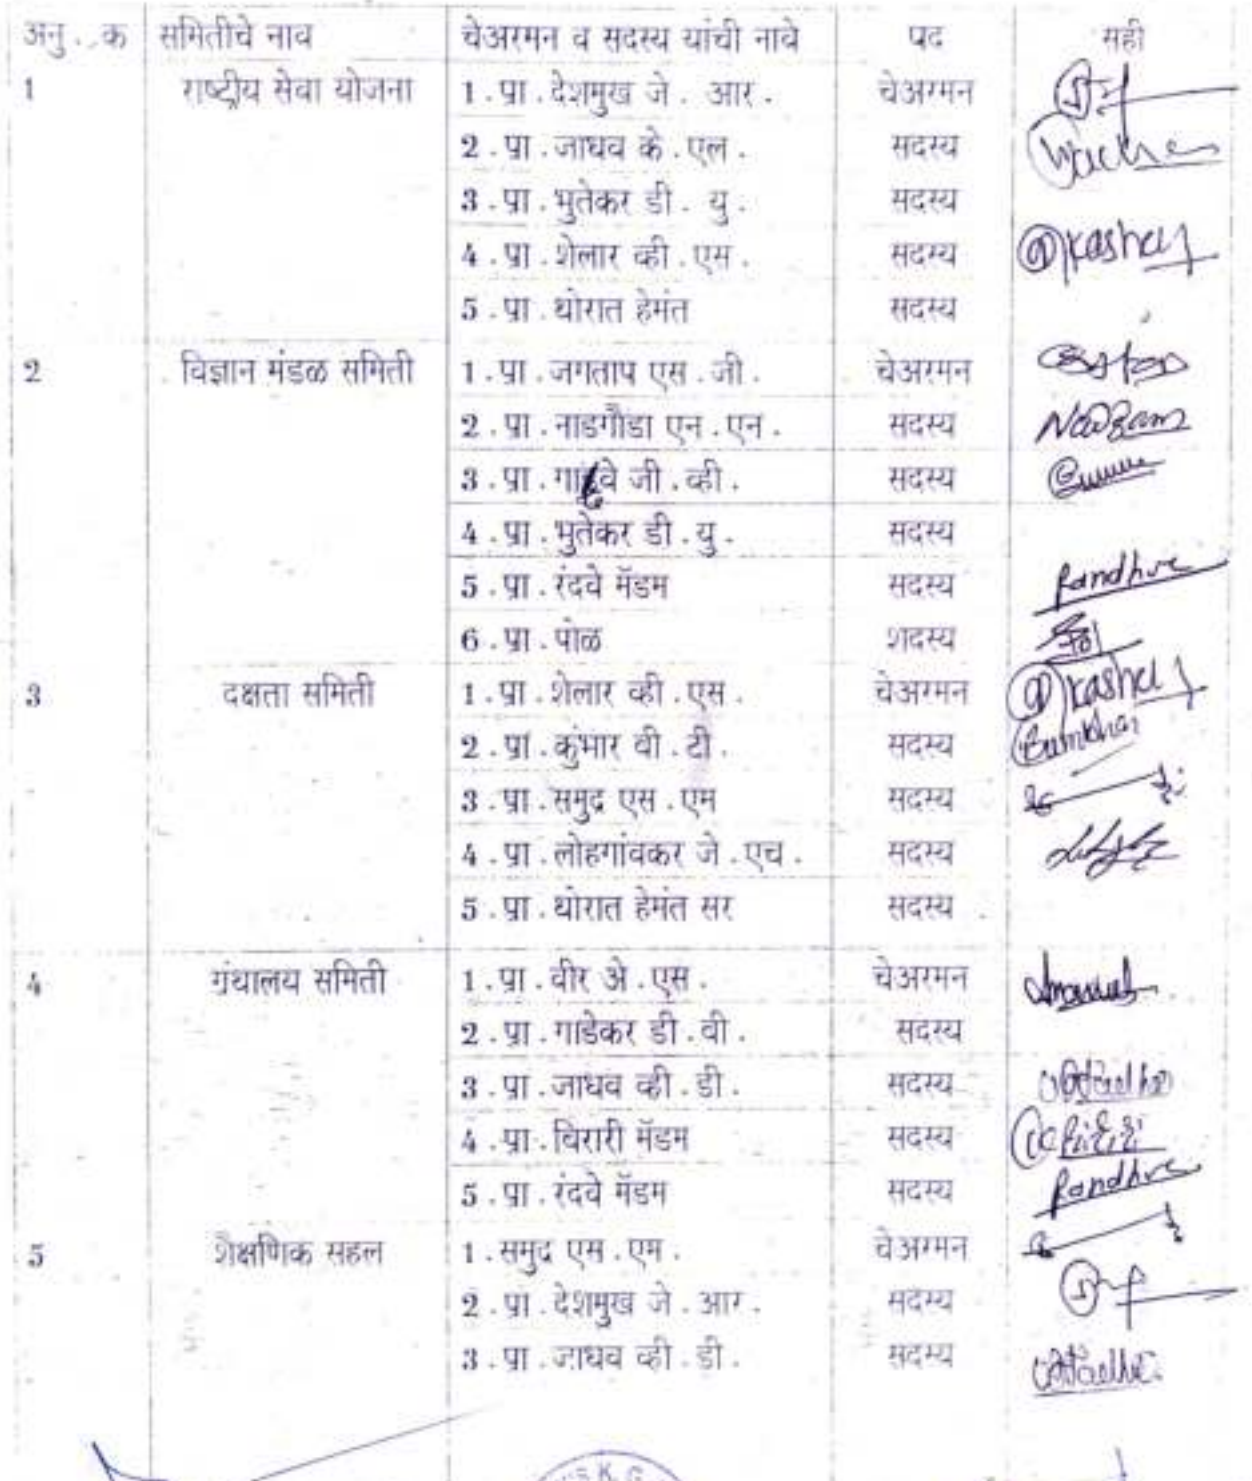 अनु . क समितीचे नाव चेअरमन व सदस्य यांची नावे पद सही
1 राष्ट्रीय सेवा योजना 1 . प्रा . देशमुख जे . आर . चेअरमन
2 . प्रा . जाधव के . एल . सदस्य
3 . प्रा . भुतेकर डी . यु . सदस्य
4 . प्रा . शेलार व्ही . एस . सदस्य
5 . प्रा . थोरात हेमंत सदस्य
2 विज्ञान मंडळ समिती 1 . प्रा . जगताप एस . जी . चेअरमन
2 . प्रा . नाडगौडा एन . एन . सदस्य
3 . प्रा . जी . व्ही . सदस्य
4 . प्रा . भुतेकर डी . यु . सदस्य
5 . प्रा . रंदवे मॅडम सदस्य Randhve
6 . प्रा . पोळ शदस्य
3 दक्षता समिती 1 . प्रा . शेलार व्ही . एस . चेअरमन
2 . प्रा . कुंभार वी . टी . सदस्य
3 . प्रा . समुद्र एस . एम सदस्य
4 . प्रा . लोहगांवकर जे . एच . सदस्य
5 . प्रा . थोरात हेमंत सर सदस्य
4 ग्रंथालय समिती 1 . प्रा . वीर अे . एस . चेअरमन
2 . प्रा . गाडेकर डी . वी . सदस्य
3 . प्रा . जाधव व्ही . डी . सदस्य
4 . प्रा . बिरारी मॅडम सदस्य
5 . प्रा . रंदवे मॅडम सदस्य Randhve
5 शैक्षणिक सहल 1 . समुद्र एस . एम . चेअरमन
2 . प्रा . देशमुख जे . आर . सदस्य
3 . प्रा . जाधव व्ही . डी . सदस्य